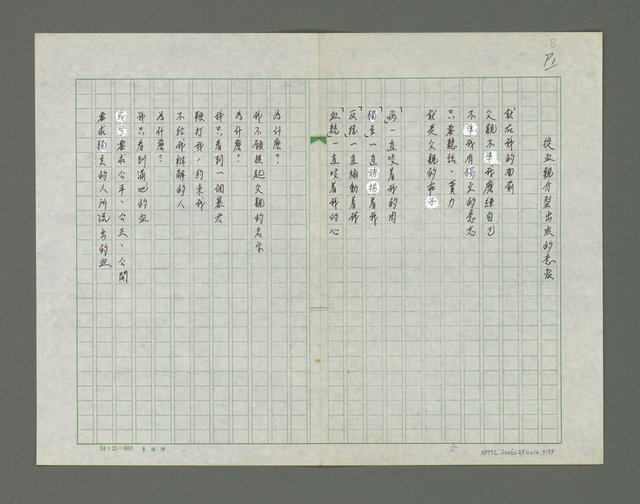 B
P1
從血親分裂出來的意象
就在我的面前
父親不準我磨練自己
不準我有獨立的意志
只要聽話、賣力
就是父親的乖子
「病」一直咬着我的肉
「獨立」一直誘拐着我
「反抗」一直煽動着我
「血親」一直咬着我的心
為什麼?
我不願提起父親的名字
為什麼?
我只看到一個暴君
鞭打我,約束我
不給我辯解的人
為什麼?
我只看到滿地的血
要求公平、公正、公開
要求獨立的人所流出的血
24×25=600
5
NMTL 20060250014.9/99